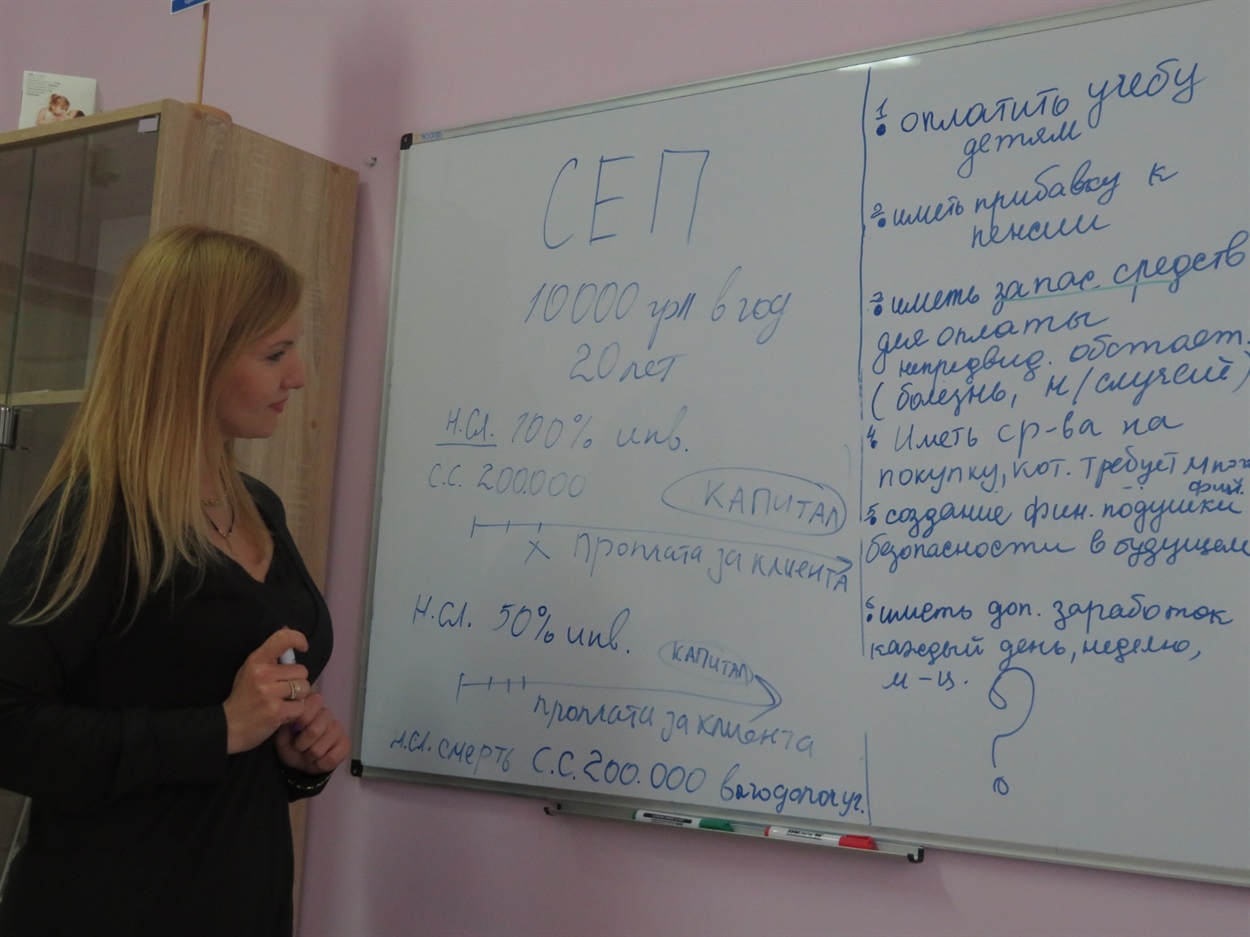 СЕП
10000 грн в год
20 лет
Н.Сл. 100% инв.
С.С. 200.000
КАПИТАЛ
X проплата за клиента
Н.Сл. 50% инв.
КАПИТАЛ
проплата за клиента
Н.Сл. смерть С.С. 200.000 выгодополуч.
1. оплатить учебу
детям
2. иметь прибавку к
пенсии
3. иметь запас средств
для оплаты
непредвид. обстоят.
(болезнь, н/случай)
4. Иметь ср-ва на
покупку, кот. требует
5. создание фин. подушки
безопасности в будущем
6. иметь доп. заработок
каждый день, неделю,
м-ц.
?